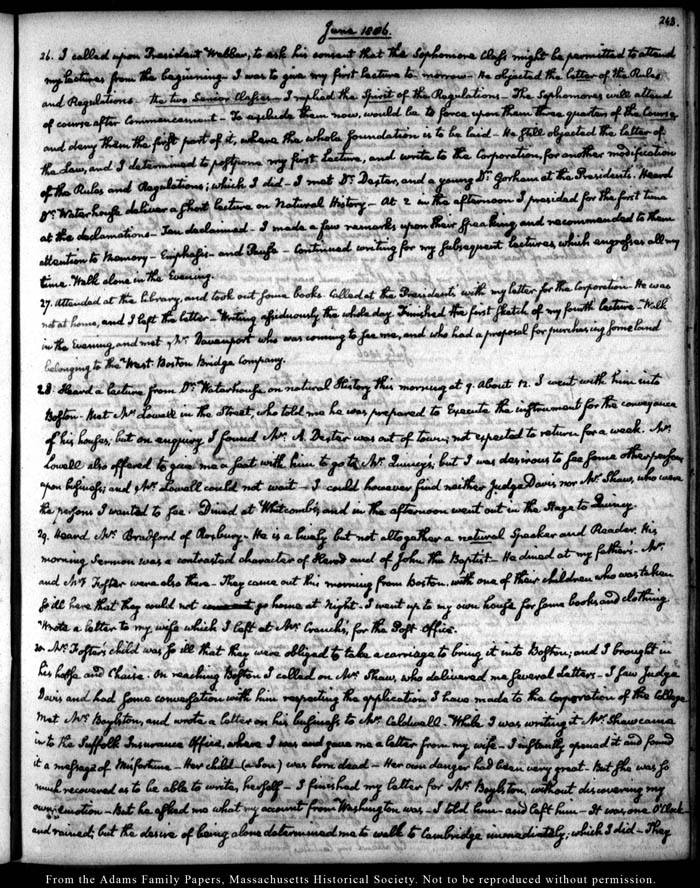 243.
June 1806.
26. I called upon President Webber, to ask his consent that the Sophomore Class might be permitted to attend
my lectures from the beginning. I was to give my first lecture to-morrow – He objected the letter of the Rules
and Regulations – the two Senior Classes – I replied the Spirit of the Regulations – The Sophomores will attend
of course after Commencement – To exclude them now, would be to force upon them three quarters of the Course
and deny them the first part of it, where the whole foundation is to be laid – He still objected the letter of
the Law, and I determined to postpone my first Lecture, and write to the Corporation, for another modification
of the Rules and Regulations; which I did – I met Dr. Dexter, and a young Dr. Gorham at the Presidents. Heard
Dr. Waterhouse deliver a short lecture on Natural History – At 2 in the afternoon I presided for the first time
at the declamations – Ten declaimed – I made a few remarks upon their speaking and recommended to them
attention to Memory – Emphasis – and Pause – Continued writing for my subsequent lectures, which engrosses all my
time. Walk alone in the Evening.
27. Attended at the Library, and took out some books. Called at the Presidents with my letter for the Corporation – He was
not at home, and I left the letter – Writing assiduously the whole day. Finished the first sketch of my fourth lecture – Walk
in the Evening, and met Mr. Davenport who was coming to see me, and who had a proposal for purchasing some land
belonging to the West Boston Bridge Company.
28. Heard a lecture from Dr. Waterhouse on natural History this morning at 9. About 12. I went with him into
Boston. Met Mr. Lowell in the Street, who told me he was prepared to Execute the instrument for the conveyance
of his houses; but on enquiry I found Mr. A. Dexter was out of town; not expected to return for a week. Mr.
Lowell also offered to give me a seat with him to go to Mr. Quincy's; but I was desirous to see some other persons
upon business; and Mr. Lowell could not wait – I could however find neither Judge Davis nor Mr. Shaw, who were
the persons I wanted to see. Dined at Whitcomb's, and in the afternoon went out in the Stage to Quincy.
29. Heard Mr. Bradford of Roxbury – He is a lively but not altogether a natural Speaker and Reader. His
morning Sermon was a contrasted character of Herod and of John the Baptist – He dined at my fathers – Mr.
and Mrs. Foster were also there – They came out this morning from Boston with one of their children who was taken
so ill here that they could not go home at Night – I went up to my own house for some books and clothing.
Wrote a letter to my wife which I left at Mr. Cranch's, for the Post Office.
30. Mr. Fosters child was so ill that they were obliged to take a carriage to bring it into Boston; and I brought in
his horse and Chaise. On reaching Boston I called on Mr. Shaw, who delivered me several letters – I saw Judge
Davis and had some conversation with him respecting the application I have made to the Corporation of the College
Met Mr. Boylston, and wrote a letter on his business to Mr. Caldwell – While I was writing it Mr. Shaw came
in to the Suffolk Insurance Office, where I was and gave me a letter from my wife – I instantly opened it and found
it a message of Misfortune – Her child (a Son) was born dead – Her own danger had been very great – But she was so
much recovered as to be able to write, herself – I finished my letter for Mr. Boylston, without discovering my
own emotion – But he asked me what my account from Washington was – I told him – and left him – It was one O'Clock
and rained; but the desire of being alone determined me to walk to Cambridge immediately; which I did – They
From the Adams Family Papers, Massachusetts Historical Society. Not to be reproduced without permission.